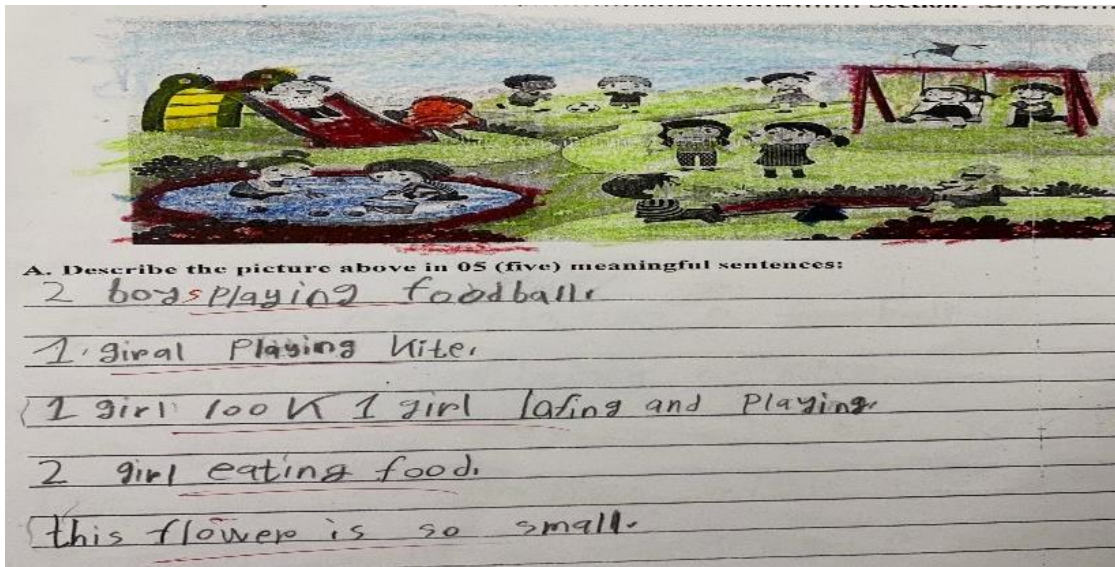 A. Describe the picture above in 05 (five) meaningful sentences:
2 boys playing foodball.
1. giral Playing Kite.
1 girl look 1 girl lafing and Playing.
2 girl eating food.
this flower is so small.